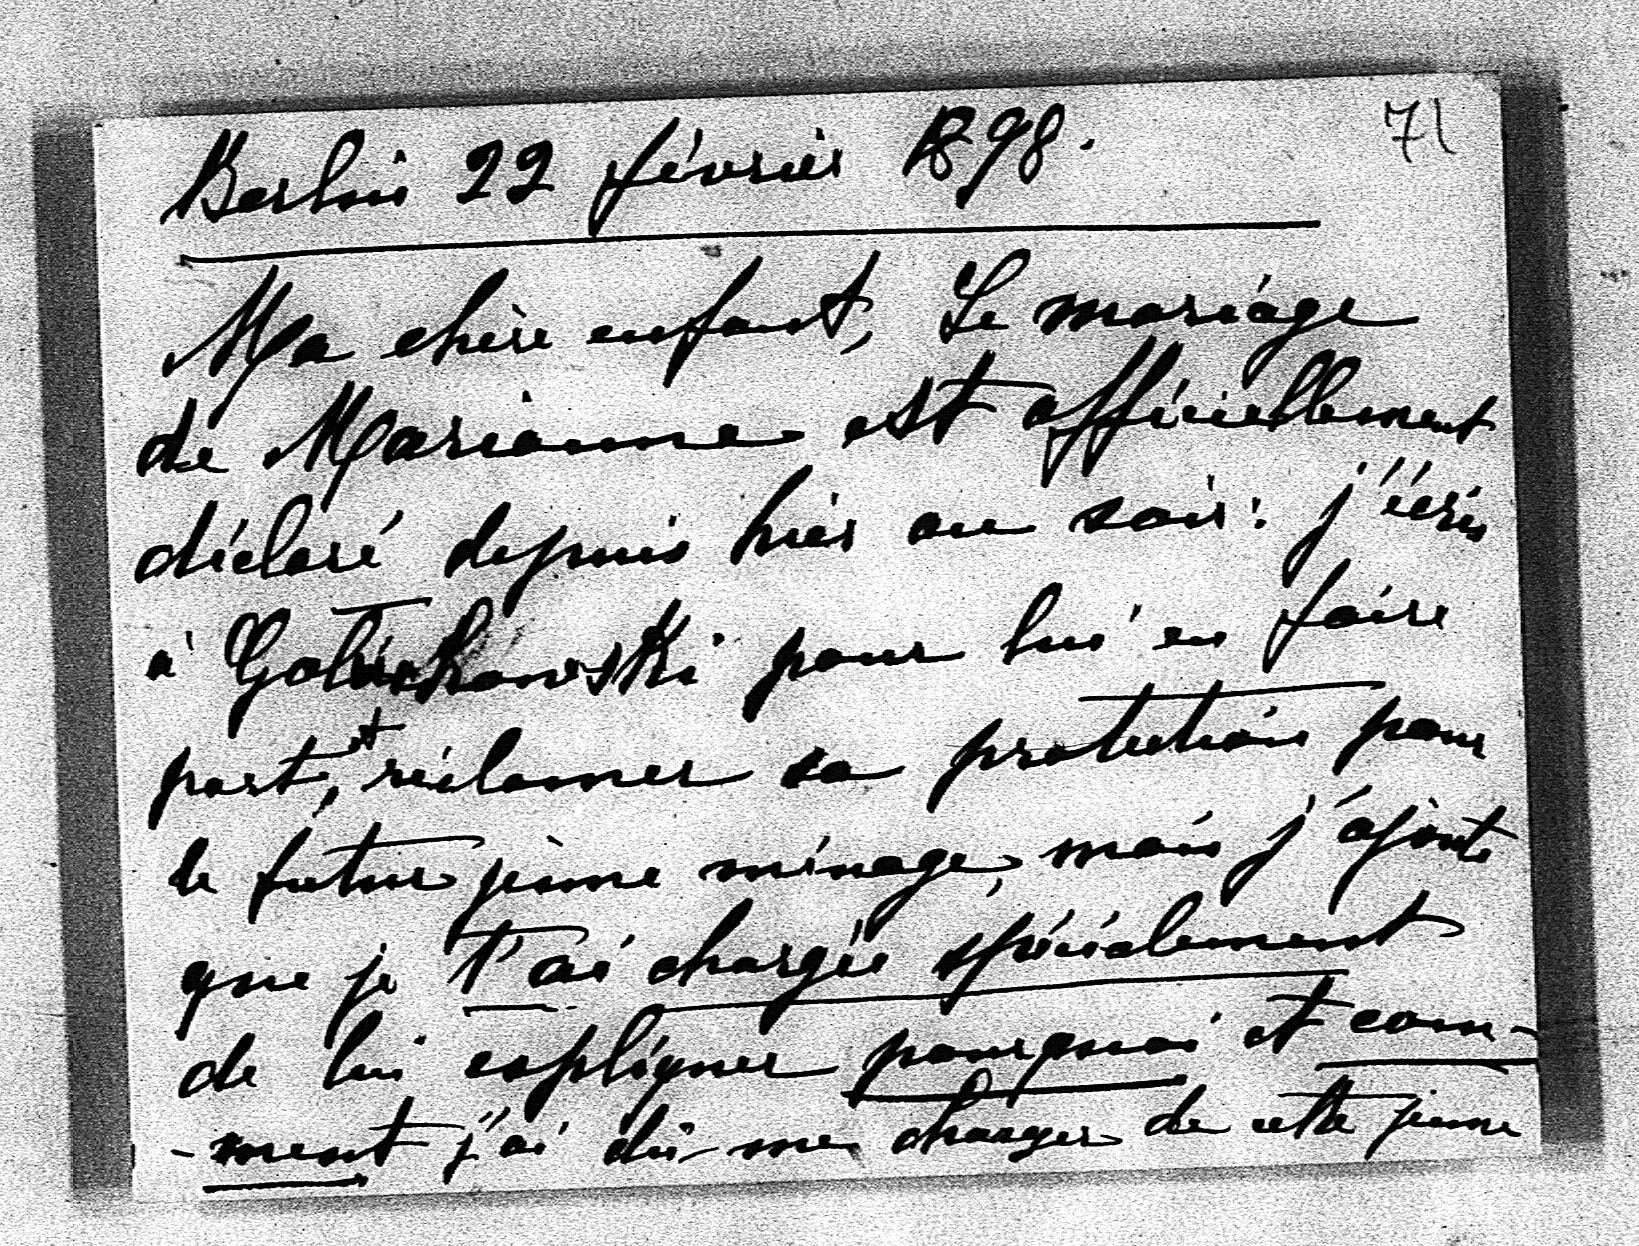 71
Berlin 22 février 1898.
Ma chère enfant, Le mariage
de Marianne est officiellement
déclaré depuis hier au soir: j'écris
à Goluchowski pour lui en faire
part, et réclamer sa protection pour
le futur jeune ménage, mais j'ajoute
que je t'ai chargée spécialement
de lui expliquer pourquoi et com-
-ment j'ai dû me charger de cette jeune